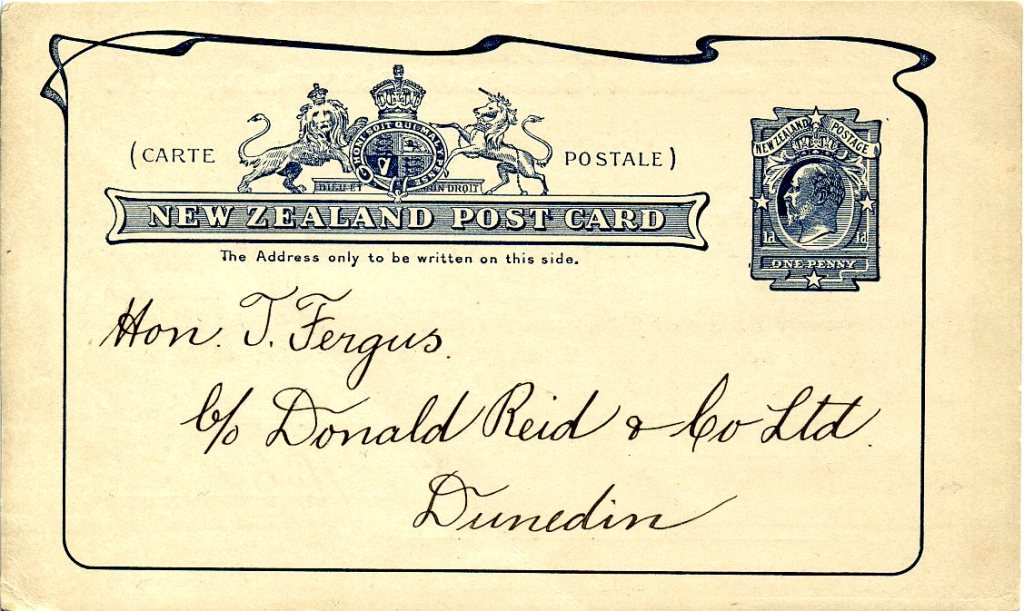 (CARTE POSTALE)
HONI SOIT QUI MAL Y PENSE
DIEU ET MON DROIT
NEW ZEALAND POST CARD
The Address only to be written on this side.
NEW ZEALAND POSTAGE
1d 1d
ONE PENNY
Hon. T. Fergus.
c/o Donald Reid & Co Ltd.
Dunedin